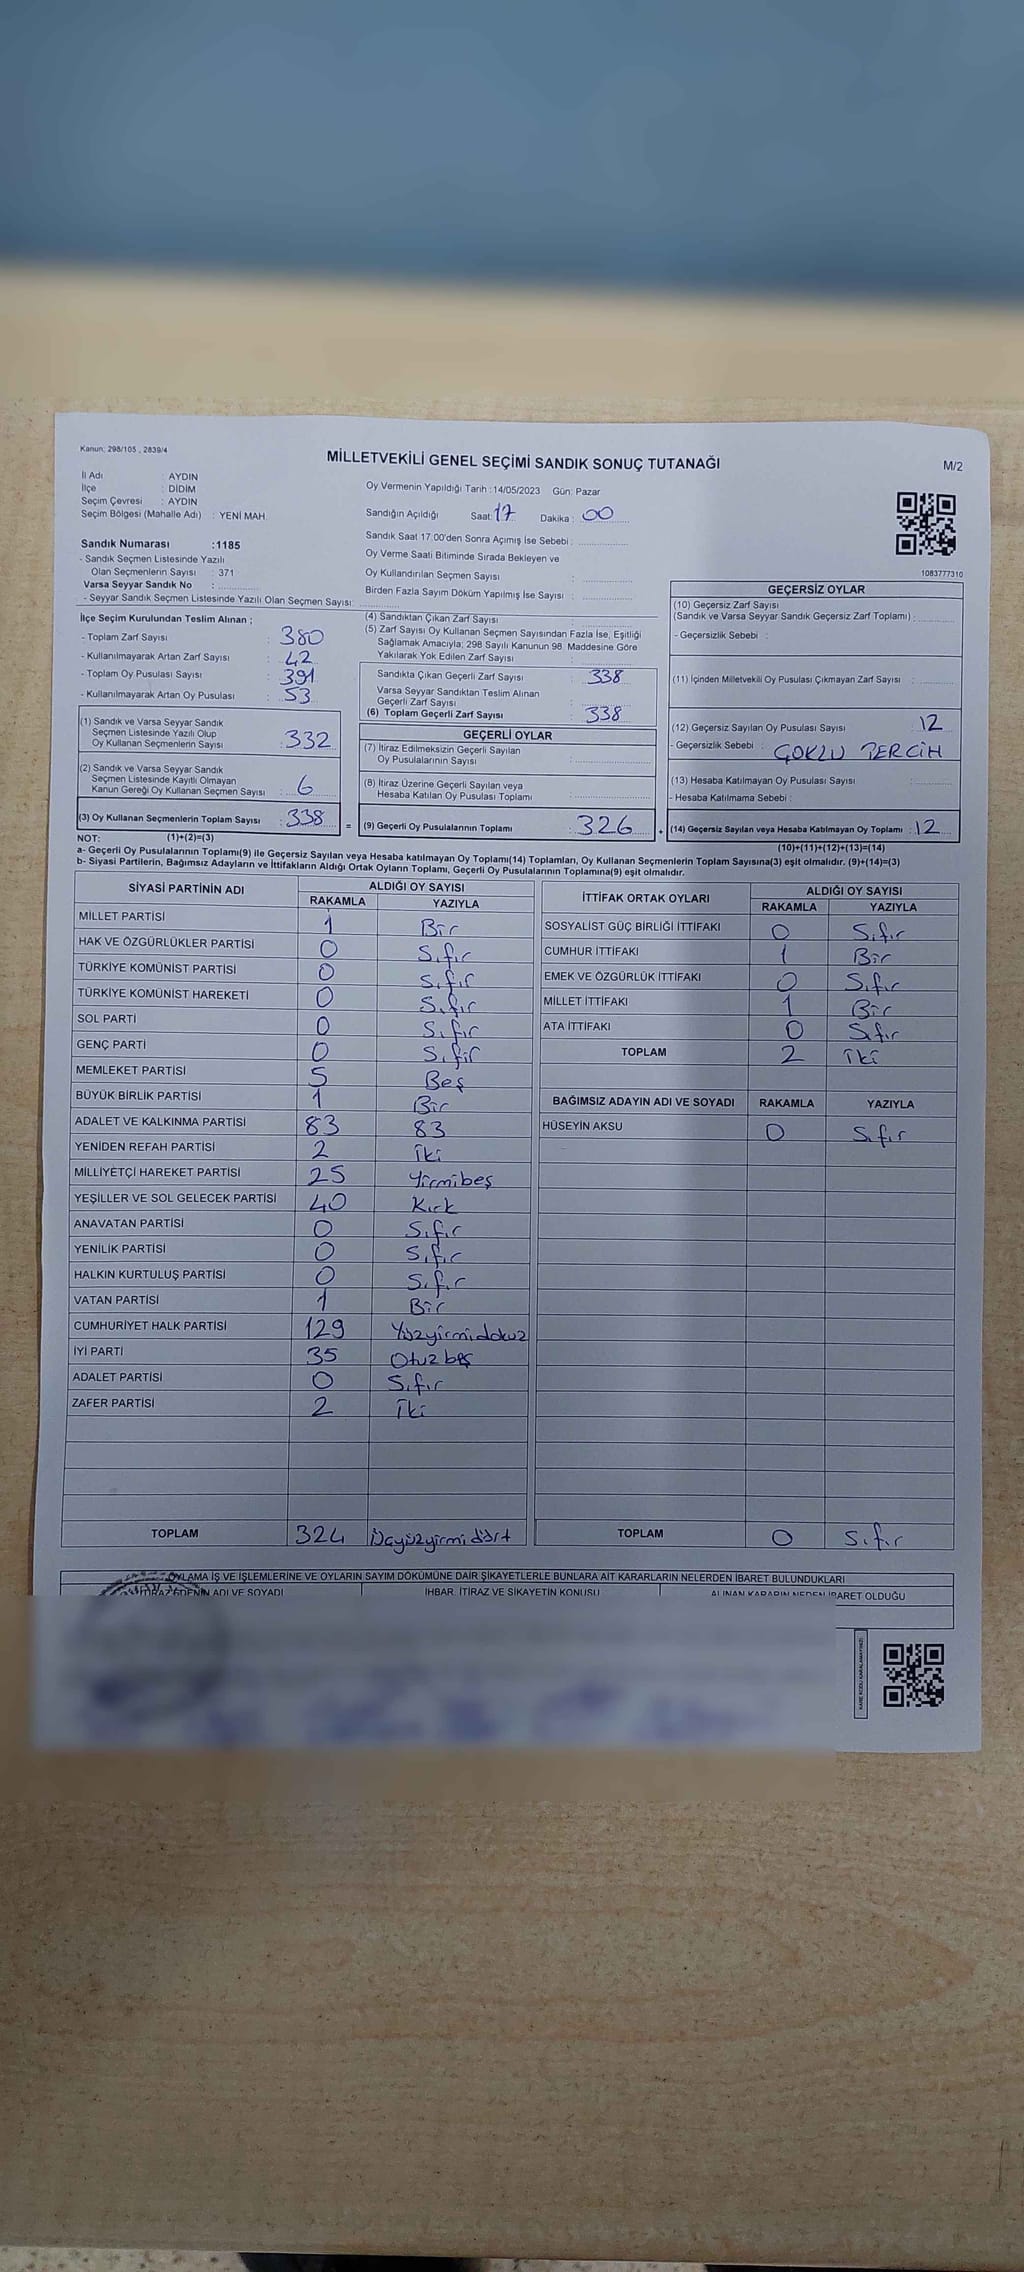 Kanun: 298/105 , 2839/4
MİLLETVEKİLİ GENEL SEÇİMİ SANDIK SONUÇ TUTANAĞI
M/2
İl Adı : AYDIN
İlçe : DİDİM
Seçim Çevresi : AYDIN
Seçim Bölgesi (Mahalle Adı) : YENİ MAH.
Oy Vermenin Yapıldığı Tarih :14/05/2023 Gün: Pazar
Sandığın Açıldığı Saat: 17 Dakika : 00
Sandık Saat 17:00'den Sonra Açımış İse Sebebi :
Oy Verme Saati Bitiminde Sırada Bekleyen ve
Oy Kullandırılan Seçmen Sayısı :
Birden Fazla Sayım Döküm Yapılmış İse Sayısı :
Sandık Numarası :1185
- Sandık Seçmen Listesinde Yazılı
Olan Seçmenlerin Sayısı : 371
Varsa Seyyar Sandık No :
- Seyyar Sandık Seçmen Listesinde Yazılı Olan Seçmen Sayısı:
1083777310
İlçe Seçim Kurulundan Teslim Alınan ;
- Toplam Zarf Sayısı : 380
- Kullanılmayarak Artan Zarf Sayısı : 42
- Toplam Oy Pusulası Sayısı : 391
- Kullanılmayarak Artan Oy Pusulası : 53
(1) Sandık ve Varsa Seyyar Sandık
Seçmen Listesinde Yazılı Olup
Oy Kullanan Seçmenlerin Sayısı : 332
(2) Sandık ve Varsa Seyyar Sandık
Seçmen Listesinde Kayıtlı Olmayan
Kanun Gereği Oy Kullanan Seçmen Sayısı : 6
(3) Oy Kullanan Seçmenlerin Toplam Sayısı : 338
(4) Sandıktan Çıkan Zarf Sayısı :
(5) Zarf Sayısı Oy Kullanan Seçmen Sayısından Fazla İse, Eşitliği
Sağlamak Amacıyla; 298 Sayılı Kanunun 98. Maddesine Göre
Yakılarak Yok Edilen Zarf Sayısı :
Sandıkta Çıkan Geçerli Zarf Sayısı : 338
Varsa Seyyar Sandıktan Teslim Alınan
Geçerli Zarf Sayısı :
(6) Toplam Geçerli Zarf Sayısı : 338
GEÇERLİ OYLAR
(7) İtiraz Edilmeksizin Geçerli Sayılan
Oy Pusulalarının Sayısı :
(8) İtiraz Üzerine Geçerli Sayılan veya
Hesaba Katılan Oy Pusulası Toplamı :
= (9) Geçerli Oy Pusulalarının Toplamı : 326 +
GEÇERSİZ OYLAR
(10) Geçersiz Zarf Sayısı
(Sandık ve Varsa Seyyar Sandık Geçersiz Zarf Toplamı) :
- Geçersizlik Sebebi :
(11) İçinden Milletvekili Oy Pusulası Çıkmayan Zarf Sayısı :
(12) Geçersiz Sayılan Oy Pusulası Sayısı : 12
- Geçersizlik Sebebi : ÇOKLU TERCİH
(13) Hesaba Katılmayan Oy Pusulası Sayısı :
- Hesaba Katılmama Sebebi :
(14) Geçersiz Sayılan veya Hesaba Katılmayan Oy Toplamı : 12
NOT: (1)+(2)=(3)
(10)+(11)+(12)+(13)=(14)
a- Geçerli Oy Pusulalarının Toplamı(9) ile Geçersiz Sayılan veya Hesaba katılmayan Oy Toplamı(14) Toplamları, Oy Kullanan Seçmenlerin Toplam Sayısına(3) eşit olmalıdır. (9)+(14)=(3)
b- Siyasi Partilerin, Bağımsız Adayların ve İttifakların Aldığı Ortak Oyların Toplamı, Geçerli Oy Pusulalarının Toplamına(9) eşit olmalıdır.
SİYASİ PARTİNİN ADI ALDIĞI OY SAYISI
RAKAMLA YAZIYLA
MİLLET PARTİSİ 1 Bir
HAK VE ÖZGÜRLÜKLER PARTİSİ 0 Sıfır
TÜRKİYE KOMÜNİST PARTİSİ 0 Sıfır
TÜRKİYE KOMÜNİST HAREKETİ 0 Sıfır
SOL PARTİ 0 Sıfır
GENÇ PARTİ 0 Sıfır
MEMLEKET PARTİSİ 5 Beş
BÜYÜK BİRLİK PARTİSİ 1 Bir
ADALET VE KALKINMA PARTİSİ 83 83
YENİDEN REFAH PARTİSİ 2 İki
MİLLİYETÇİ HAREKET PARTİSİ 25 Yirmibeş
YEŞİLLER VE SOL GELECEK PARTİSİ 40 Kırk
ANAVATAN PARTİSİ 0 Sıfır
YENİLİK PARTİSİ 0 Sıfır
HALKIN KURTULUŞ PARTİSİ 0 Sıfır
VATAN PARTİSİ 1 Bir
CUMHURİYET HALK PARTİSİ 129 Yüzyirmidokuz
İYİ PARTİ 35 Otuzbeş
ADALET PARTİSİ 0 Sıfır
ZAFER PARTİSİ 2 İki
TOPLAM 324 Üçyüzyirmidört
İTTİFAK ORTAK OYLARI ALDIĞI OY SAYISI
RAKAMLA YAZIYLA
SOSYALİST GÜÇ BİRLİĞİ İTTİFAKI 0 Sıfır
CUMHUR İTTİFAKI 1 Bir
EMEK VE ÖZGÜRLÜK İTTİFAKI 0 Sıfır
MİLLET İTTİFAKI 1 Bir
ATA İTTİFAKI 0 Sıfır
TOPLAM 2 İki
BAĞIMSIZ ADAYIN ADI VE SOYADI RAKAMLA YAZIYLA
HÜSEYİN AKSU 0 Sıfır
TOPLAM 0 Sıfır
OYLAMA İŞ VE İŞLEMLERİNE VE OYLARIN SAYIM DÖKÜMÜNE DAİR ŞİKAYETLERLE BUNLARA AİT KARARLARIN NELERDEN İBARET BULUNDUKLARI
İTİRAZ EDENİN ADI VE SOYADI İHBAR, İTİRAZ VE ŞİKAYETİN KONUSU ALINAN KARARIN NEDEN İBARET OLDUĞU
KARE KODU KARALAMAYINIZ!